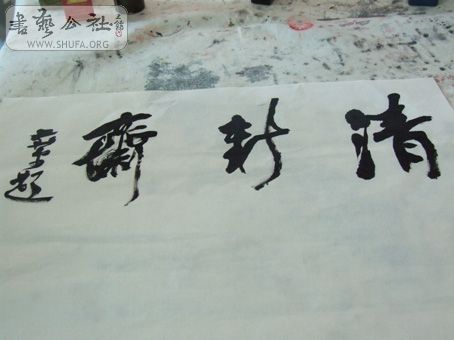 書藝公社
WWW.SHUFA.ORG
清新齋
題